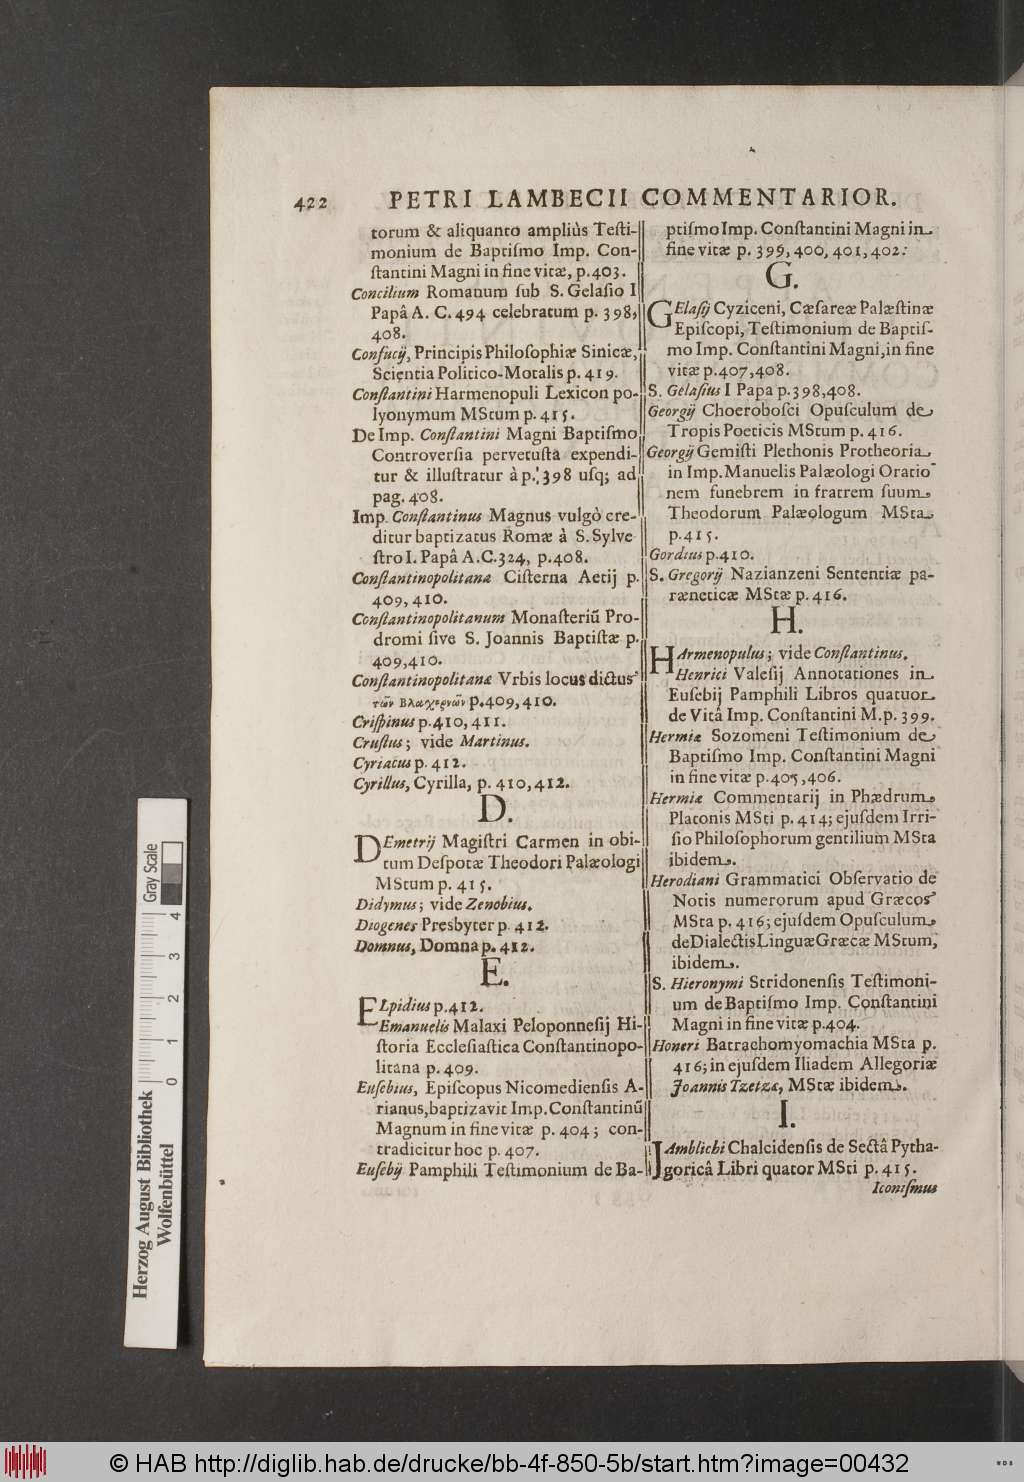 422 PETRI LAMBECII COMMENTARIOR.
torum & aliquanto ampliùs Teſti-
monium de Baptiſmo Imp. Con-
ſtantini Magni in fine vitæ, p.403.
Concilium Romanum ſub S. Gelaſio I
Papâ A. C. 494 celebratum p. 398,
408.
Confucij, Principis Philoſophiæ Sinicæ,
Scientia Politico-Moralis p. 419.
Conſtantini Harmenopuli Lexicon po-
lyonymum MStum p. 415.
De Imp. Conſtantini Magni Baptiſmo
Controverſia pervetuſta expendi-
tur & illuſtratur à p. 398 uſq; ad
pag. 408.
Imp. Conſtantinus Magnus vulgò cre-
ditur baptizatus Romæ à S. Sylve
ſtro I. Papâ A.C.324, p.408.
Conſtantinopolitana Ciſterna Aetij p.
409, 410.
Conſtantinopolitanum Monaſteriũ Pro-
dromi ſive S. Joannis Baptiſtæ p.
409,410.
Conſtantinopolitanæ Vrbis locus dictus
τῶν Βλαχερνῶν p.409,410.
Criſpinus p.410, 411.
Cruſius; vide Martinus.
Cyriacus p. 412.
Cyrillus, Cyrilla, p. 410,412.
D.
DEmetrij Magiſtri Carmen in obi-
tum Deſpotæ Theodori Palæologi
MStum p. 415.
Didymus; vide Zenobius.
Diogenes Presbyter p. 412.
Domnus, Domna p. 412.
E.
ELpidius p.412.
Emanuelis Malaxi Peloponneſij Hi-
ſtoria Eccleſiaſtica Conſtantinopo-
litana p. 409.
Euſebius, Epiſcopus Nicomedienſis A-
rianus,baptizavit Imp.Conſtantinũ
Magnum in fine vitæ p. 404; con-
tradicitur hoc p. 407.
Euſebij Pamphili Teſtimonium de Ba-
ptiſmo Imp. Conſtantini Magni in
fine vitæ p. 399, 400, 401, 402.
G.
GElaſij Cyziceni, Cæſareæ Palæſtinæ
Epiſcopi, Teſtimonium de Baptiſ-
mo Imp. Conſtantini Magni,in fine
vitæ p.407,408.
S. Gelaſius I Papa p.398,408.
Georgij Choeroboſci Opuſculum de
Tropis Poeticis MStum p. 416.
Georgij Gemiſti Plethonis Protheoria
in Imp. Manuelis Palæologi Oratio
nem funebrem in fratrem ſuum
Theodorum Palæologum MSta
p.415.
Gordius p.410.
S. Gregorij Nazianzeni Sententiæ pa-
ræneticæ MStæ p. 416.
H.
HArmenopulus; vide Conſtantinus.
Henrici Valeſij Annotationes in
Euſebij Pamphili Libros quatuor
de Vitâ Imp. Conſtantini M.p. 399.
Hermiæ Sozomeni Teſtimonium de
Baptiſmo Imp. Conſtantini Magni
in fine vitæ p.405,406.
Hermiæ Commentarij in Phædrum
Platonis MSti p. 414; ejuſdem Irri-
ſio Philoſophorum gentilium MSta
ibidem.
Herodiani Grammatici Obſervatio de
Notis numerorum apud Græcos
MSta p. 416; ejuſdem Opuſculum
de Dialectis Linguæ Græcæ MStum,
ibidem.
S. Hieronymi Stridonenſis Teſtimoni-
um de Baptiſmo Imp. Conſtantini
Magni in fine vitæ p.404.
Homeri Batrachomyomachia MSta p.
416; in ejuſdem Iliadem Allegoriæ
Joannis Tzetzæ, MStæ ibidem.
I.
JAmblichi Chalcidenſis de Sectâ Pytha-
goricâ Libri quator MSti p. 415.
Iconiſmus
Gray Scale
0 1 2 3 4
Herzog August Bibliothek
Wolfenbüttel
© HAB http://diglib.hab.de/drucke/bb-4f-850-5b/start.htm?image=00432